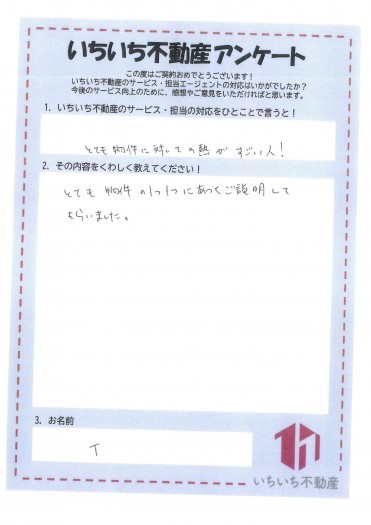 いちいち不動産アンケート
この度はご契約おめでとうございます！
いちいち不動産のサービス・担当エージェントの対応はいかがでしたか？
今後のサービス向上のために、感想やご意見をいただければと思います。
1. いちいち不動産のサービス・担当の対応をひとことで言うと！
とても物件に対しての熱がすごい人！
2. その内容をくわしく教えてください！
とても物件の1つ1つにあつくご説明して
もらいました。
3. お名前
T
いちいち不動産